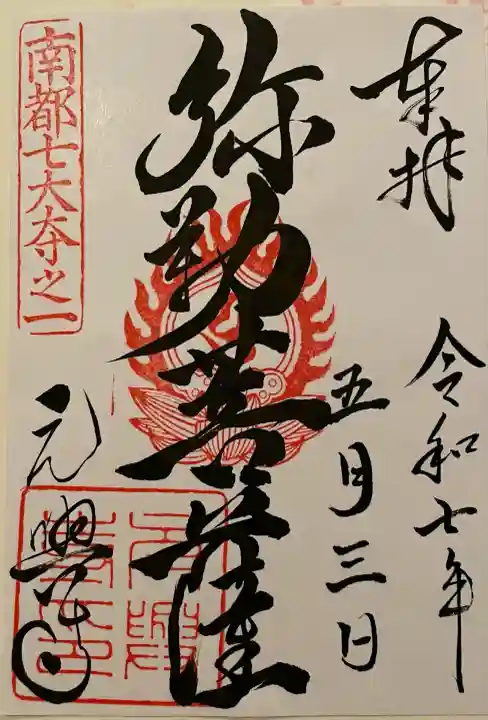 奉拝
令和七年
五月三日
彌勒菩薩
南都七大寺之一
元興寺